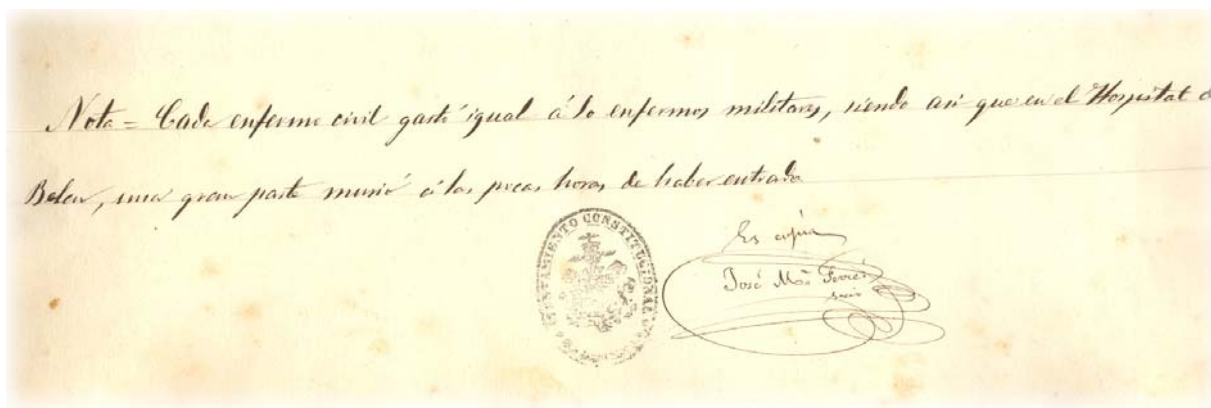 Nota = Cada enfermo civil gastó igual á lo enfermos militares, siendo asi que en el Hospital d
Belen, una gran parte murió á las pocas horas de haber entrado
AYUNTAMIENTO CONSTITUCIONAL
Es copia
José Mª Ferrer